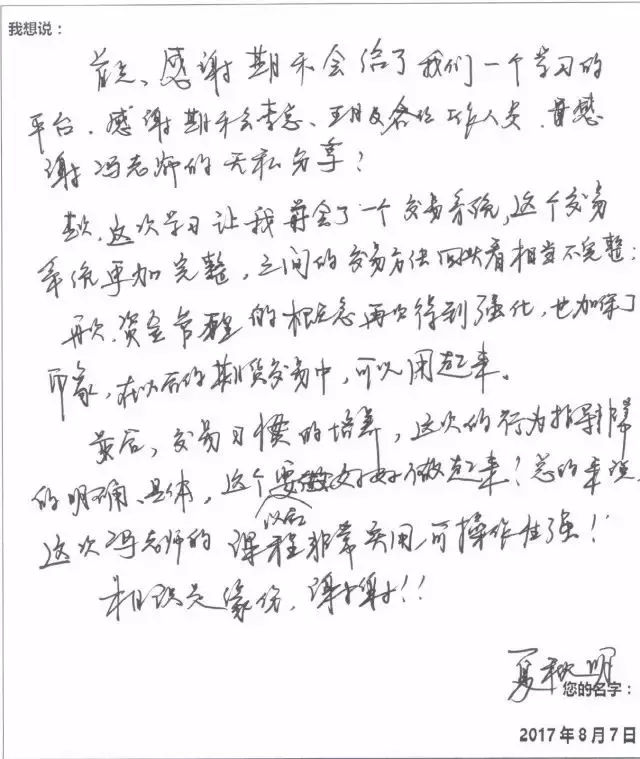 我想说：
首先、感谢期乐会给了我们一个学习的
平台，感谢期乐会李总、及各位工作人员，感
谢冯老师的无私分享！
其次，这次学习让我学会了一个交易系统，这个交易
系统更加完整，之间的交易方法回头看相当不完整；
再次，资金管理的概念再次得到强化，也加深了
印象，在以后的期货交易中，可以用起来。
最后，交易习惯的培养，这次的行为指导非常
的明确、具体，这个要好好做起来！总的来说，
以后
这次冯老师的课程非常实用，可操作性强！
相识是缘份，谢谢！！
夏秋明
您的名字：
2017年8月7日